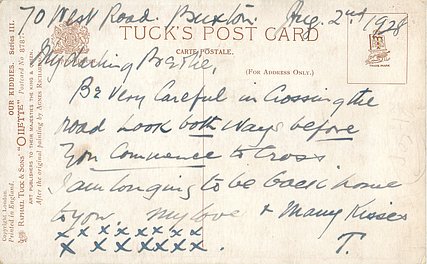 70 West Road. Buxton. Aug. 2nd 1928
TUCK'S POST CARD
CARTE POSTALE.
(FOR ADDRESS ONLY.)
My darling Bertie,
Be very Careful in Crossing the
road Look both Ways before
You Commence to Cross
I am longing to be back home
to you. My love & Many Kisses
x x x x x x x x
x x x x x x x
T.
TRADE MARK
Copyright London.
Printed in England.
RAPHAEL TUCK & SONS' "OILETTE" Postcard No
ART PUBLISHERS TO THEIR MAJESTIES THE KING & QUEEN.
After the original painting by AGNES
OUR KIDDIES. Series III.